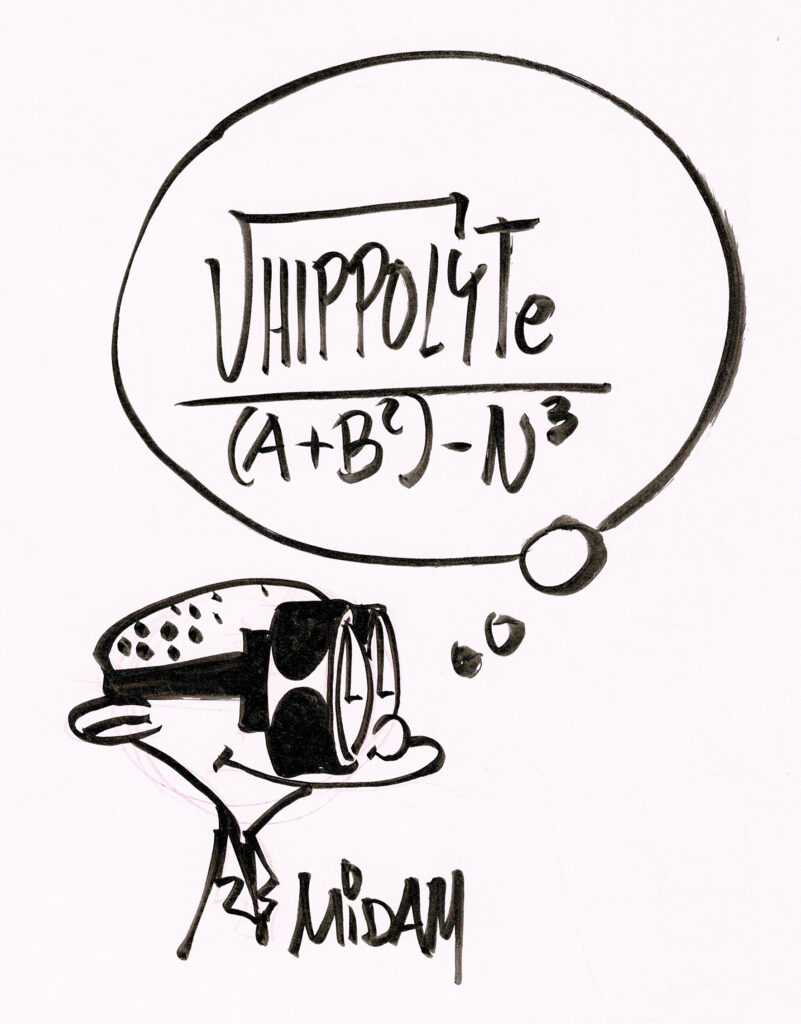 √HIPPOLYTe
(A+B²)-N³
MiDAM